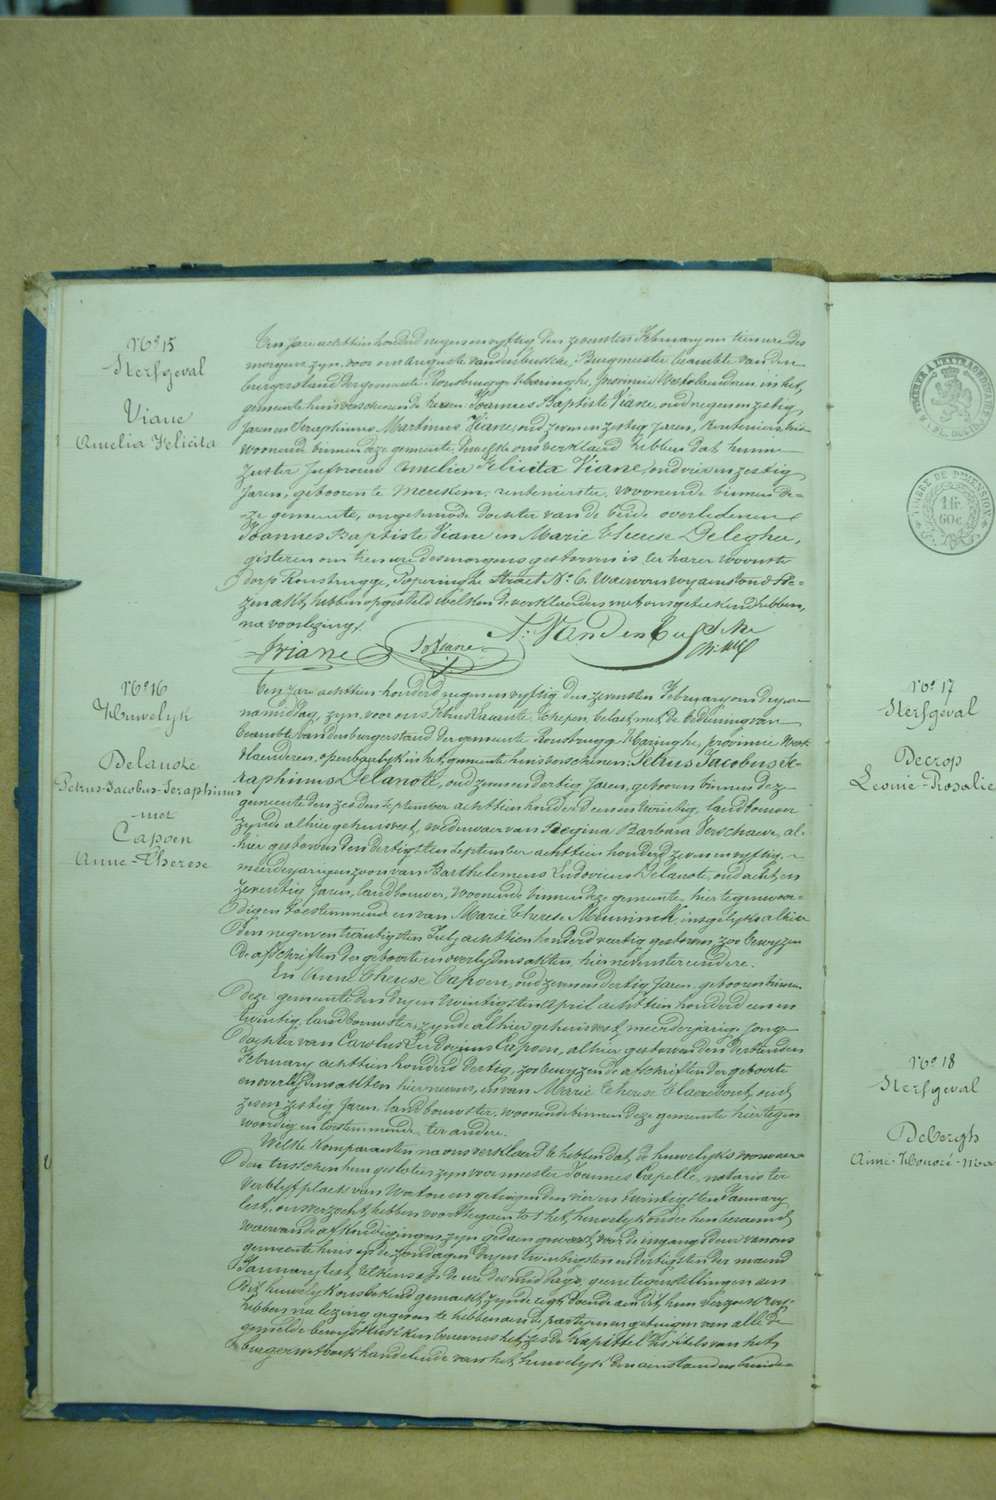 N° 15
Sterfgeval
Viane
Amelia Felicita
Ten jare achttien honderd negen en vyftig den zevensten February om tien ure des
morgens zyn voor ons Auguste Vandenbussche, Burgmeester beambte van den
burgerstand der gemeente Rousbrugge Haringhe, provincie Westvlaenderen in het
gemeente huis verschenen de heeren Joannes Baptiste Viane, oud negen en zestig
jaren en Seraphinus Martinus Viane, oud zeven en zestig jaren, Renteniers bei
woonende binnen deze gemeente, dewelke ons verklaerd hebben dat hunne
Zuster Jufvrouw Amelia Felicita Viane, oud vier en zestig
jaren, geboren te Merckem, rentenierster, woonende binnen de-
ze gemeente, ongehuwde dochter van de beide overledenen
Joannes Baptiste Viane en Marie Therese Delegher,
gisteren om tien ure des morgens gestorven is ter harer woonste
dorp Rousbrugge, Poperinghe Straet N° 6. Waervan wy aenstonds de-
zen akt hebben opgesteld welken de verklaerders met ons geteekend hebben,
na voorlezing.
Viane JoViane A. Vandenbussche
N° 16
Huwelyk
Delanote
Petrus-Jacobus-Seraphinus
met
Capoen
Anne-Therese
Ten jare achttien honderd negen en vyftig den zevensten February om dry ure
namiddag, zyn voor ons Schepen, belast met de bediening van
beambte van den burgerstand der gemeente Rousbrugge Haringhe, provincie West
Vlaenderen, openbaerlyk in het gemeente huis verschenen: Petrus Jacobus Se-
raphinus Delanote, oud zeven en dertig jaren, geboren binnen deze
gemeente den zesden September achttien honderd een en twintig, landbouwer
zynde alhier gehuisvest, weduwaer van Regina Barbara Verschaeve, al-
hier gestorven den dertigsten September achttien honderd zeven en vyftig,
meerderjarigen zoon van Barthelemeus Ludovicus Delanote, oud acht en
zeventig jaren, landbouwer, woonende binnen deze gemeente, hier tegenwoor-
digen toestemmende en van Marie Therese insgelyks alhier
den negen en twintigsten July achttien honderd veertig gestorven, zoo bewyzen
de afschriften der geboorte en overlydens akten, hiernevens ter eendere.
En Anne Therese Capoen, oud zeven en dertig jaren, geboren binnen
deze gemeente den dry en twintigsten April achttien honderd een en
twintig, landbouwster, zynde alhier gehuisvest, meerderjarige jonge
dochter van Carolus Ludovicus Capoen, alhier gestorven den derthienden
February achttien honderd dertig, zoo bewyzen de afschriften der geboorte
en overlydens akten hiernevens, en van Marie Therese Claerebout, oud
zeven zestig jaren, landbouwster, woonende binnen deze gemeente hier tegen
woordig en toestemmende ter andere.
Welke komparanten na ons verklaerd te hebben dat de huwelyks voorwaer
den tusschen hun gesloten zyn voor meester Joannes Capelle, notaris ter
verblyfplaets van Watou en getuigen den vier en twintigsten January
lest, ons verzocht hebben voort te gaen tot het huwelyk onder hen beraemd,
waervan de afkondigingen zyn gedaen geweest voor de ingang deur van ons
gemeente huis op de zondagen dry en twintigsten en dertigsten der maend
January lest, telkens op de ure des middags, geene tegenstellingen aen
dit huwelyk ons bekend gemaekt zynde regt doende aen dit hun verzoek, na
hebben na lezing gegeven te hebben aen de partyen en getuigen van alle de
gemelde bewysstukken benevens het zesde kapittel des titels van het
burger wetboek handelende van het huwelyk
N° 17
Sterfgeval
Decrop
Leonie-Rosalie
N° 18
Sterfgeval
Debergh
Aimé-Honoré
TIMBRE DE DIMENSION
1 fr.
60 c.